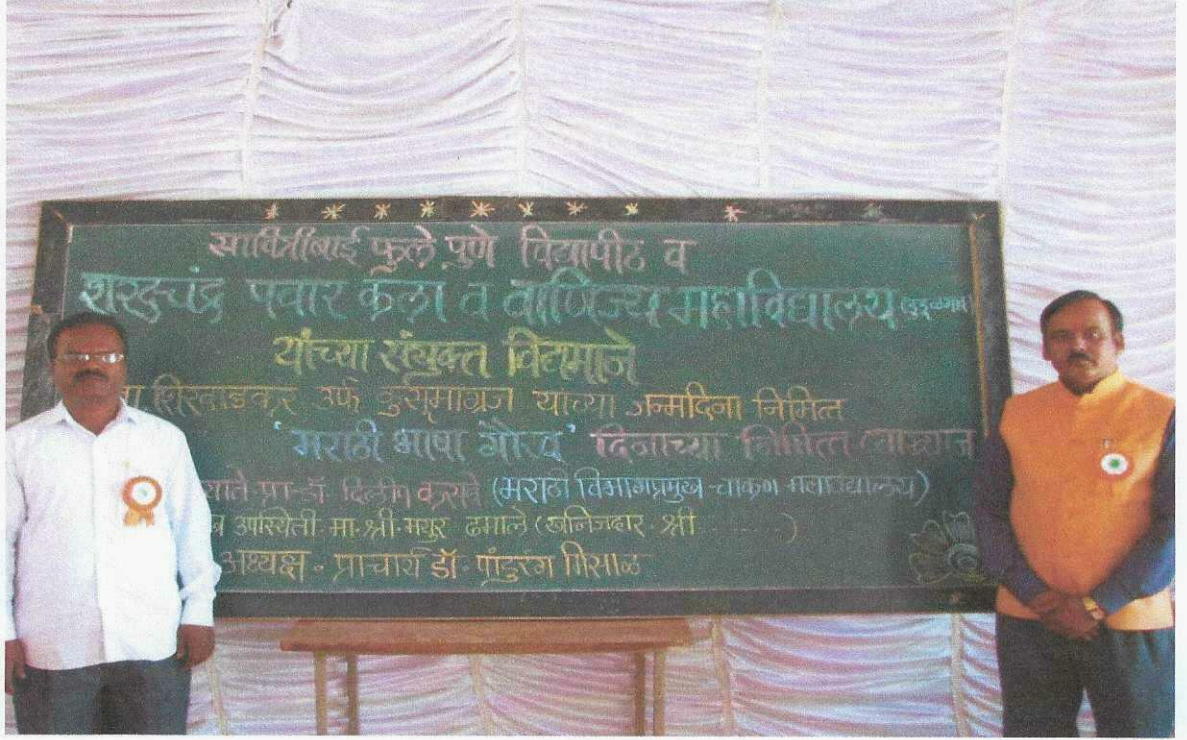 सावित्रीबाई फुले पुणे विद्यापीठ व
शरदचंद्र पवार कला व वाणिज्य महाविद्यालय (डुडुळगाव)
यांच्या संयुक्त विद्यमाने
शिरवाडकर उर्फ कुसुमाग्रज यांच्या जन्मदिना निमित्त
'मराठी भाषा गौरव' दिनाच्या निमित्त व्याख्यान
प्रा-डॉ- दिलीप कसबे (मराठी विभागप्रमुख -चाकण महाविद्यालय)
उपस्थिती-मा-श्री-मयुर ढमाले (खनिजदार- श्री ........)
अध्यक्ष - प्राचार्य डॉ- पांडुरंग मिसाळ